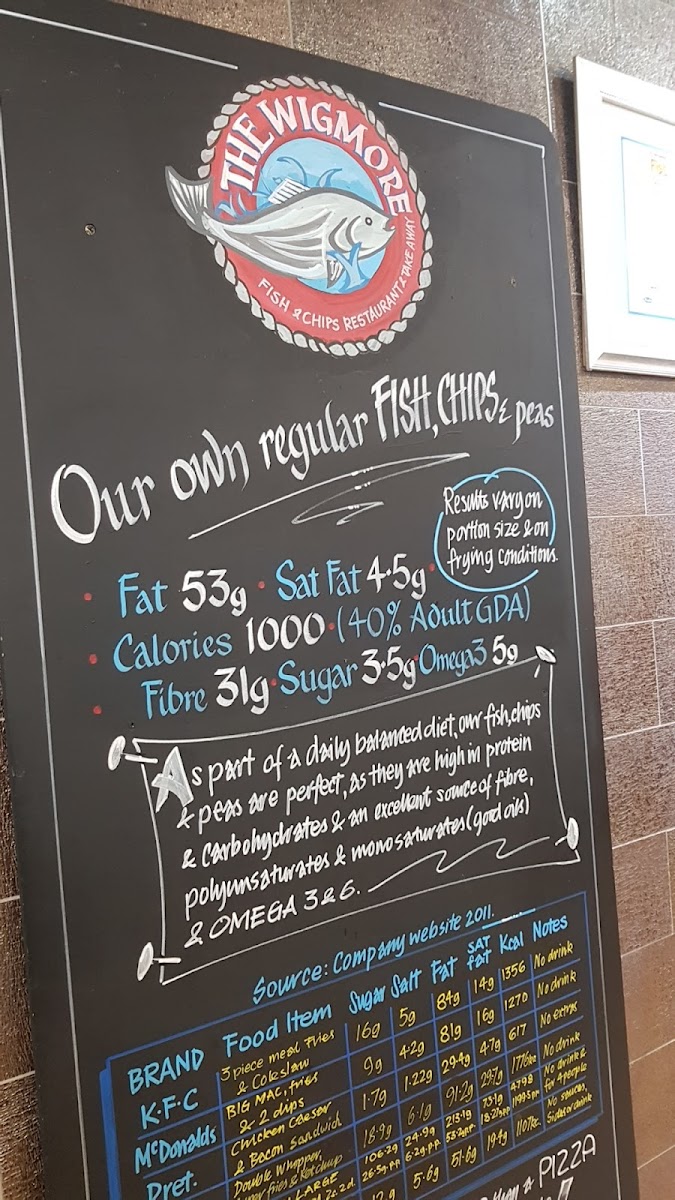 THE WIGMORE
FISH & CHIPS RESTAURANT & TAKE AWAY
Our own regular FISH, CHIPS & peas
Results vary on
portion size & on
frying conditions.
• Fat 53g • Sat Fat 4.5g •
• Calories 1000 • (40% Adult GDA)
• Fibre 31g • Sugar 3.5g • Omega3 5g
As part of a daily balanced diet, our fish, chips
& peas are perfect, as they are high in protein
& carbohydrates & an excellant source of fibre,
polyunsaturates & monosaturates (good oils)
& OMEGA 3 & 6.
Source: Company website 2011.
BRAND Food Item Sugar Salt Fat SAT fat Kcal Notes
K.F.C 3 piece meal Fries
& Coleslaw 16g 5g 84g 14g 1356 No drink
McDonalds BIG MAC, fries
& 2 dips 9g 4.2g 81g 16g 1270 No drink
Pret. Chicken Caesar
& Bacon Sandwich 1.7g 1.22g 29.4g 4.7g 617 No extras
Double Whopper,
Fries & Ketchup 18.9g 6.1g 91.2g 29.7g No drink
LARGE 106.2g 24.9g 213.1g 73.1g 4798 No drink &
for 4 people
26.5g pp 6.2g pp 53.2g pp
5.6g 51.6g 19.4g No sauces,
Sides or drink
PIZZA